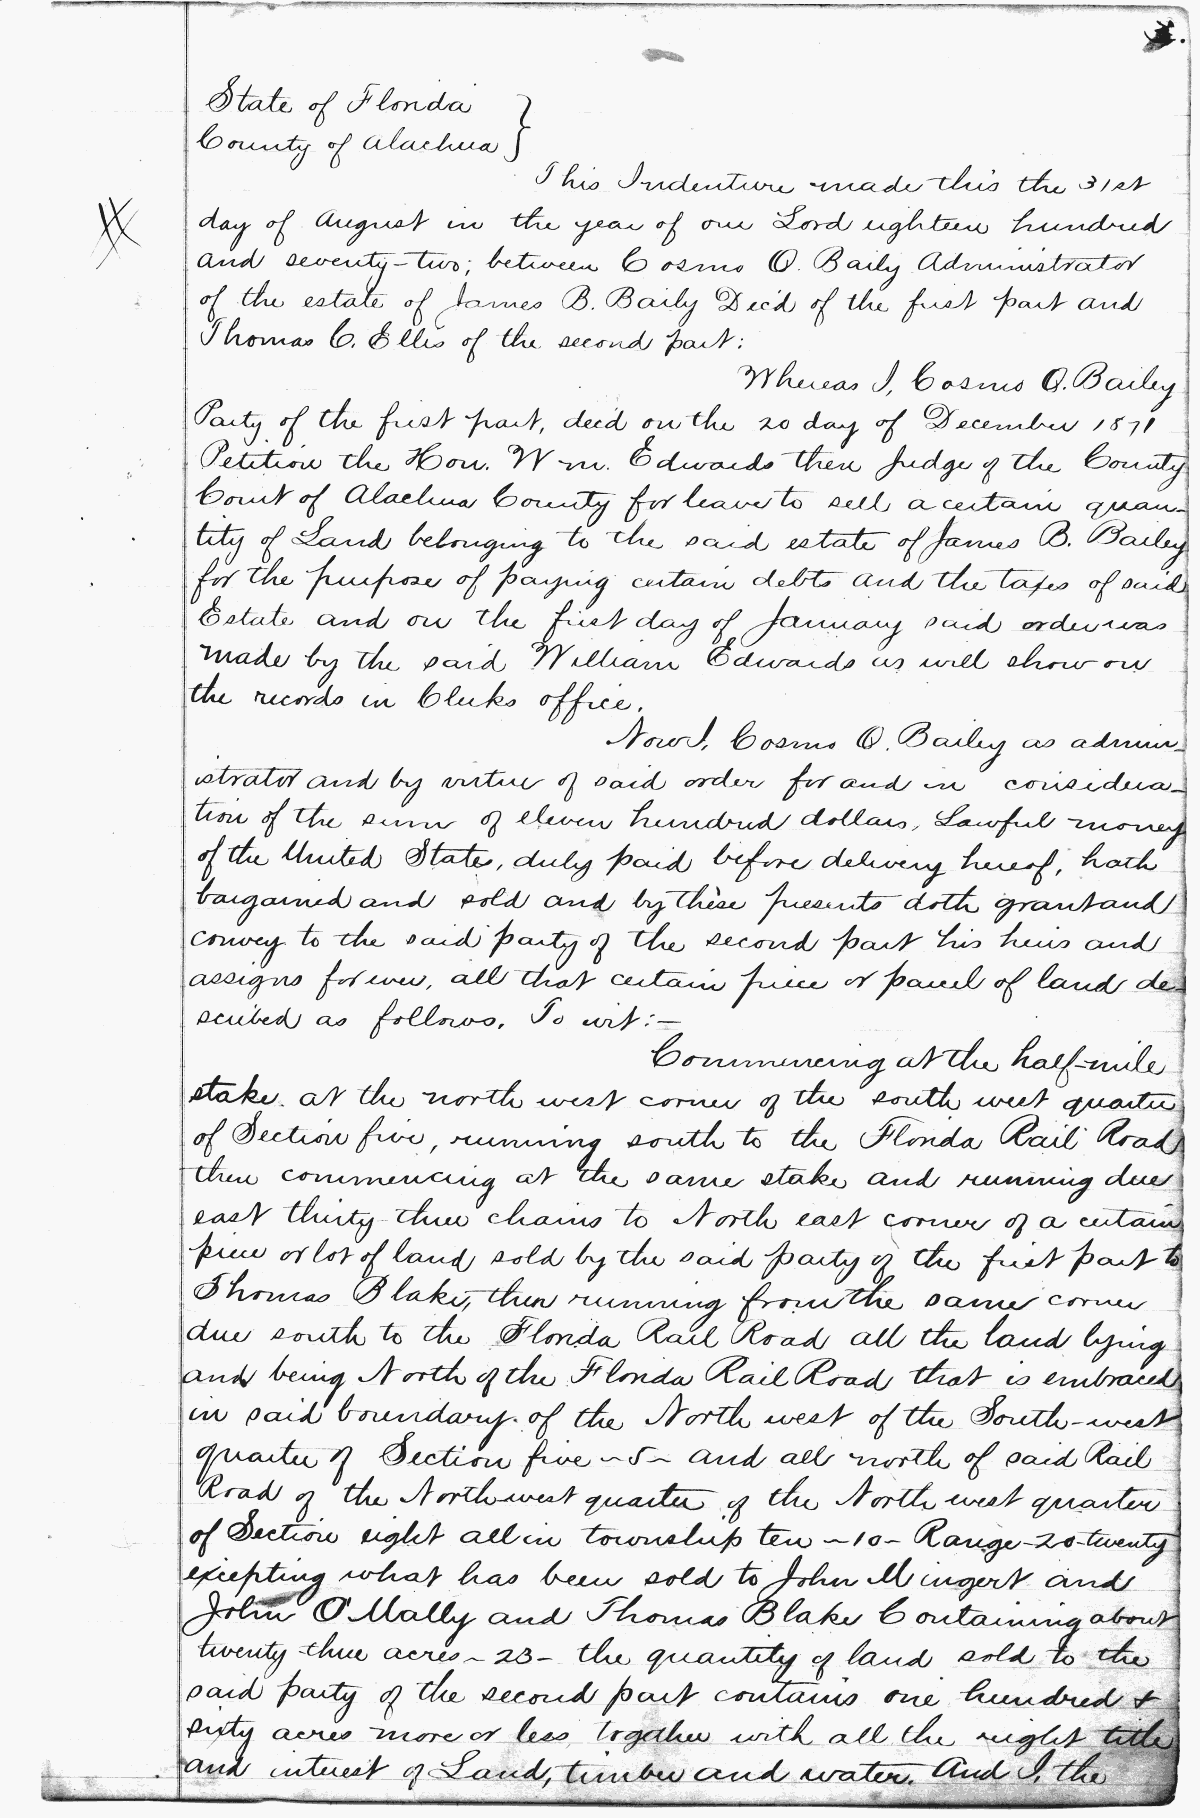 State of Florida }
County of Alachua }
This Indenture made this the 31st
day of August in the year of our Lord eighteen hundred
and seventy-two; between Cosmo O. Baily Administrator
of the estate of James B. Baily Dec'd of the first part and
Thomas C. Ellis of the second part:
Whereas I, Cosmo O. Bailey
Party of the first part, did on the 20 day of December 1871
Petition the Hon. Wm. Edwards then Judge of the County
Court of Alachua County for leave to sell a certain quan-
tity of Land belonging to the said estate of James B. Bailey
for the purpose of paying certain debts and the taxes of said
Estate and on the first day of January said order was
made by the said William Edwards as will show on
the records in Clerks office.
Now I, Cosmo O. Bailey as admin-
istrator and by virtue of said order for and in considera-
tion of the sum of eleven hundred dollars, Lawful money
of the United States, duly paid before delivery hereof, hath
bargained and sold and by these presents doth grant and
convey to the said party of the second part his heirs and
assigns forever, all that certain piece or parcel of land de-
scribed as follows. To wit:-
Commencing at the half-mile
stake at the north west corner of the south west quarter
of Section five, running south to the Florida Rail Road
then commencing at the same stake and running due
east thirty three chains to North east corner of a certain
piece or lot of land sold by the said party of the first part to
Thomas Blake, then running from the same corner
due south to the Florida Rail Road all the land lying
and being North of the Florida Rail Road that is embraced
in said boundary of the North west of the South-west
quarter of Section five -5- and all north of said Rail
Road of the North-west quarter of the North west quarter
of Section eight all in township ten -10- Range -20- twenty
excepting what has been sold to John Mingert and
John O'Mally and Thomas Blake Containing about
twenty three acres -23- the quantity of land sold to the
said party of the second part contains one hundred &
sixty acres more or less together with all the right title
and interest of Land, timber and water. And I, the